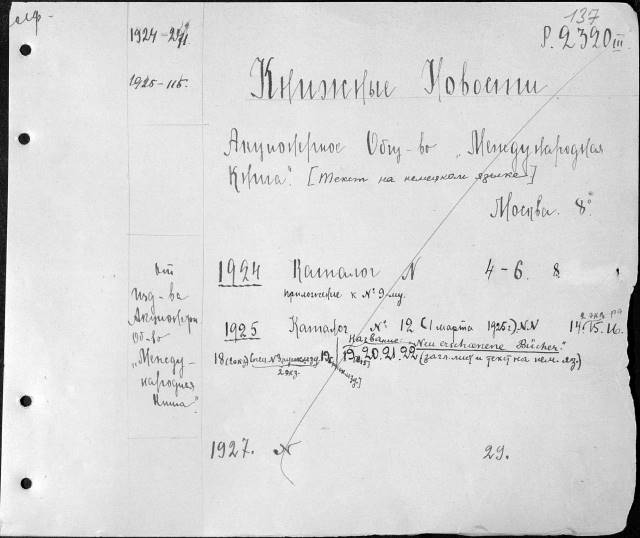 алф.
137
Р. 2320 III
1924 - 24
1925 - 115.
Книжные Новости
Акционерное Общ-во „Международная
Книга". [Текст на немецком языке]
Москва. 8°
От
изд-ва
Акционерн
Об-во
„Между-
народная
Книга".
1924 Каталог N 4-6. 8.
приложение к №9-му.
1925 Каталог № 12 (1 марта 1925 г.) N.N 14. 15. 16.
2 экз.
Название „Neu erschienene Bücher."
19. 20. 21. 22 (загл. лист и текст на нем. яз.)
2 экз.
1927. N 29.